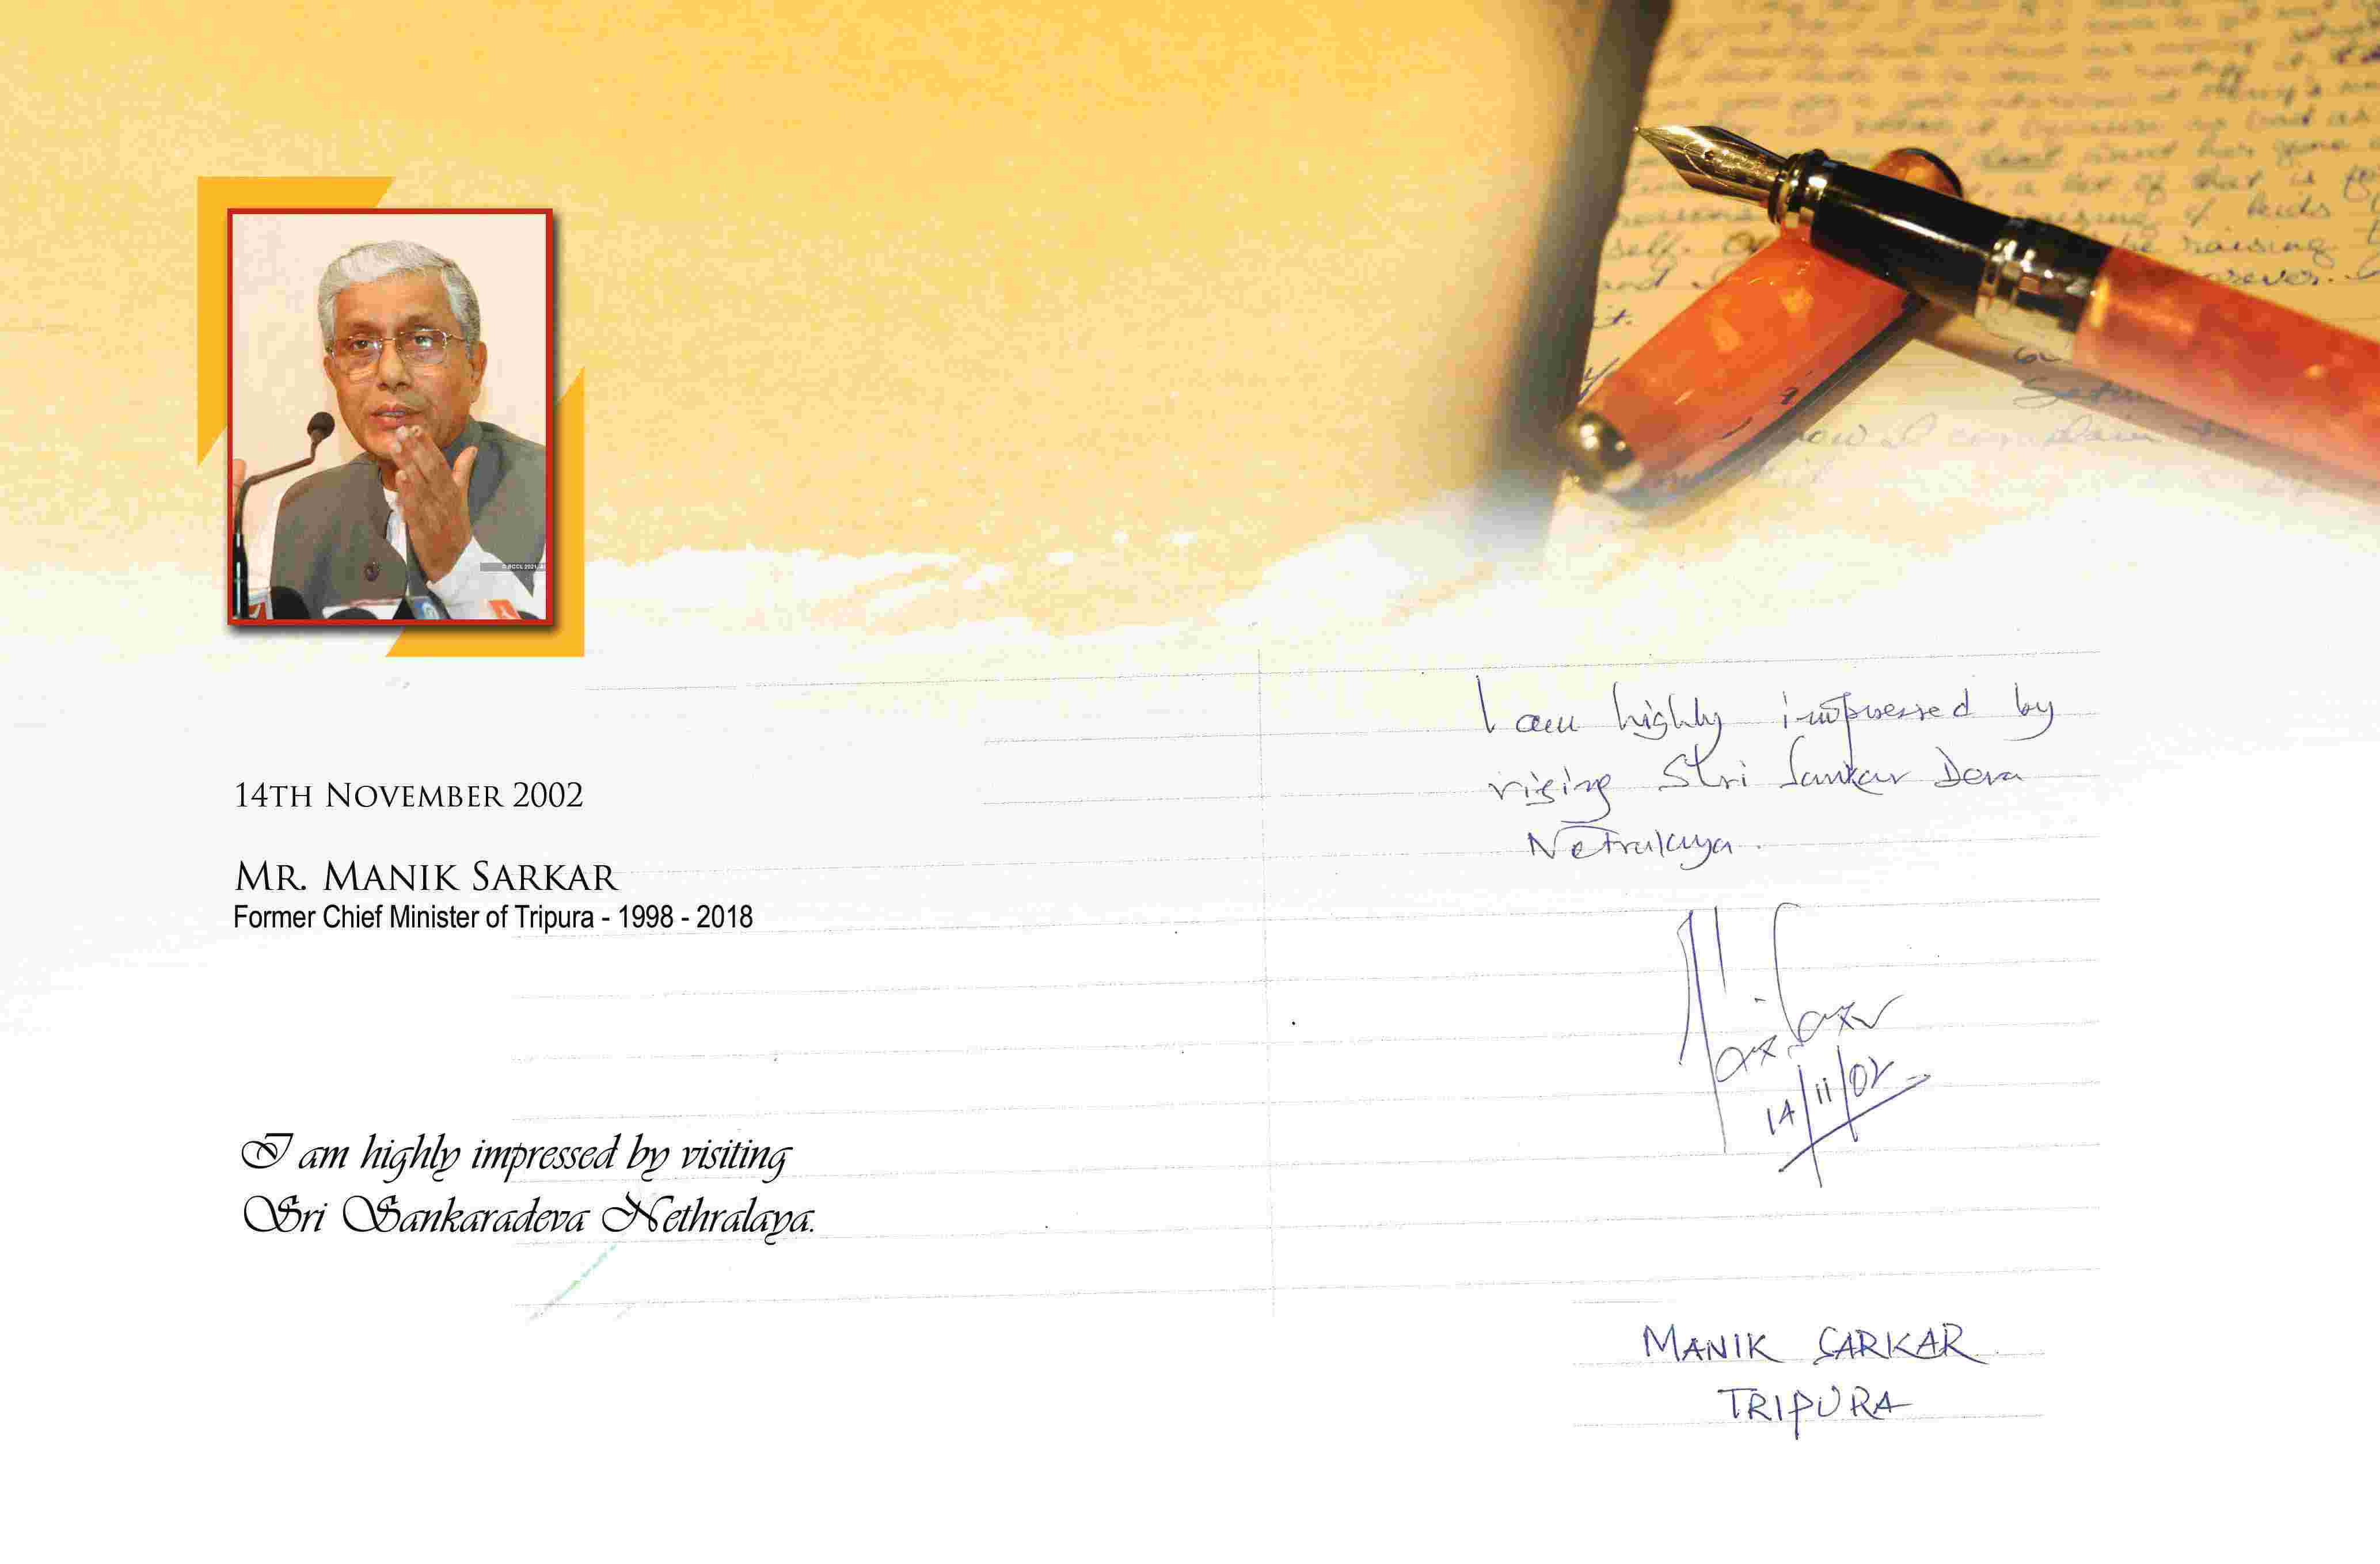 14TH NOVEMBER 2002
MR. MANIK SARKAR
Former Chief Minister of Tripura - 1998 - 2018
I am highly impressed by visiting
Sri Sankaradeva Nethralaya.
I am highly impressed by
visiing Stri Sankar Deva
Netralaya.
14/11/02
MANIK SARKAR
TRIPURA